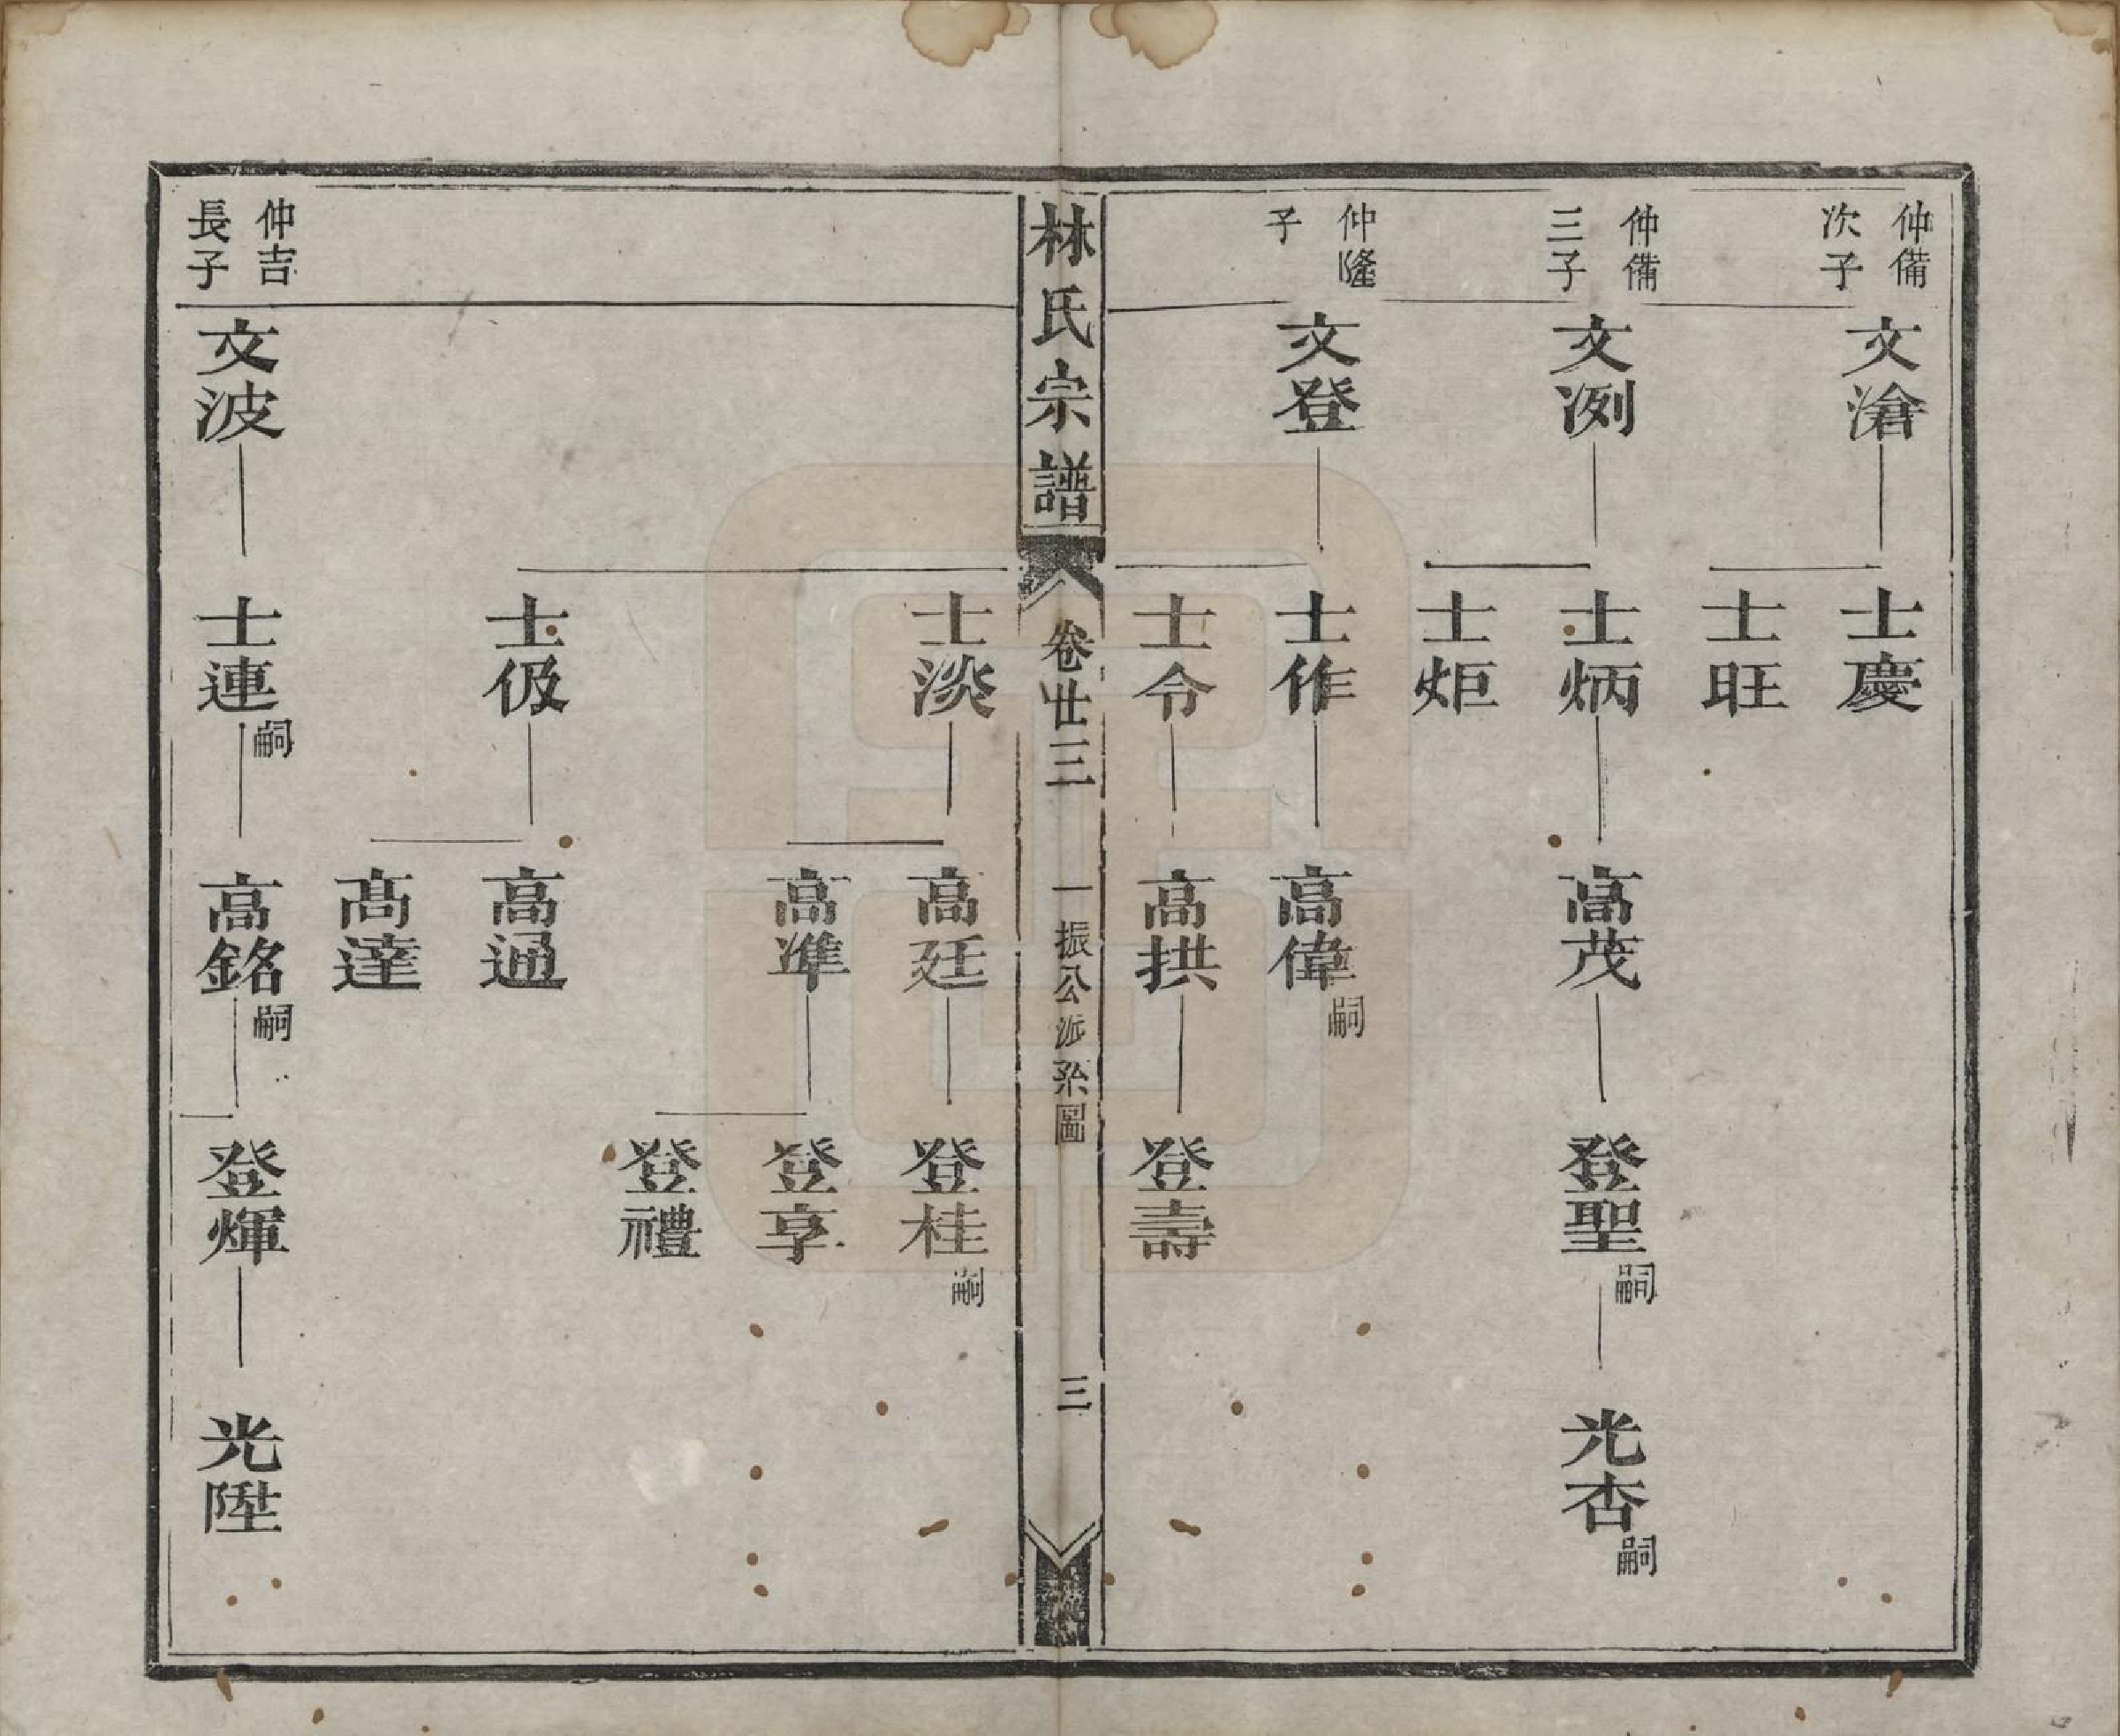 仲備
次子
文滄
士慶
士旺
仲備
三子
文冽
士炳
高茂
登聖嗣
光杏嗣
士炬
仲隆
子
文登
士作
高偉嗣
士令
高拱
登壽
林氏宗譜
卷廿三
一振公派系圖
三
士淡
高廷
登桂嗣
高準
登享
登禮
士伋
高通
高達
仲吉
長子
文波
士連嗣
高銘嗣
登煇
光陞